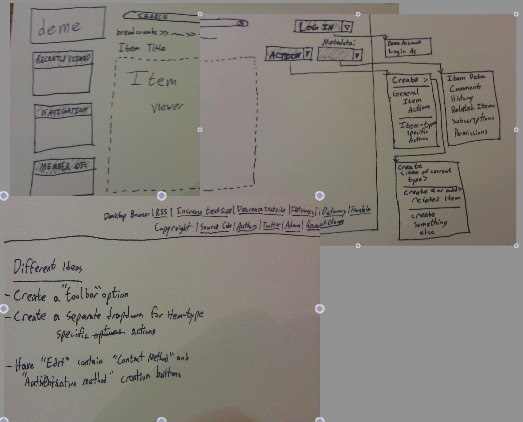 deme
SEARCH
breadcrumbs >> ~ >> ~
Item Title
RECENTLY VIEWED
Item
viewer
NAVIGATION
MEMBER OF:
LOG IN
Metadata:
ACTION
Demo Account
Login As
Create >
General
Item
Actions
Item-type
specific
Actions
Item Data
Comments
History
Related Items
Subscriptions
Permissions
Create
<item of current
type>
Create <or add>
related item
create
something
else
Desktop Browser | RSS | Increase text size | Decrease text size | | Dictionary | Translate
Copyright | Source Code | Authors | Twitter | Admin |
Different Ideas
- Create a "toolbar" option
- Create a separate dropdown for item-type
specific options actions
- Have "Edit" contain "Contact Method" and
"Authentication method" creation buttons